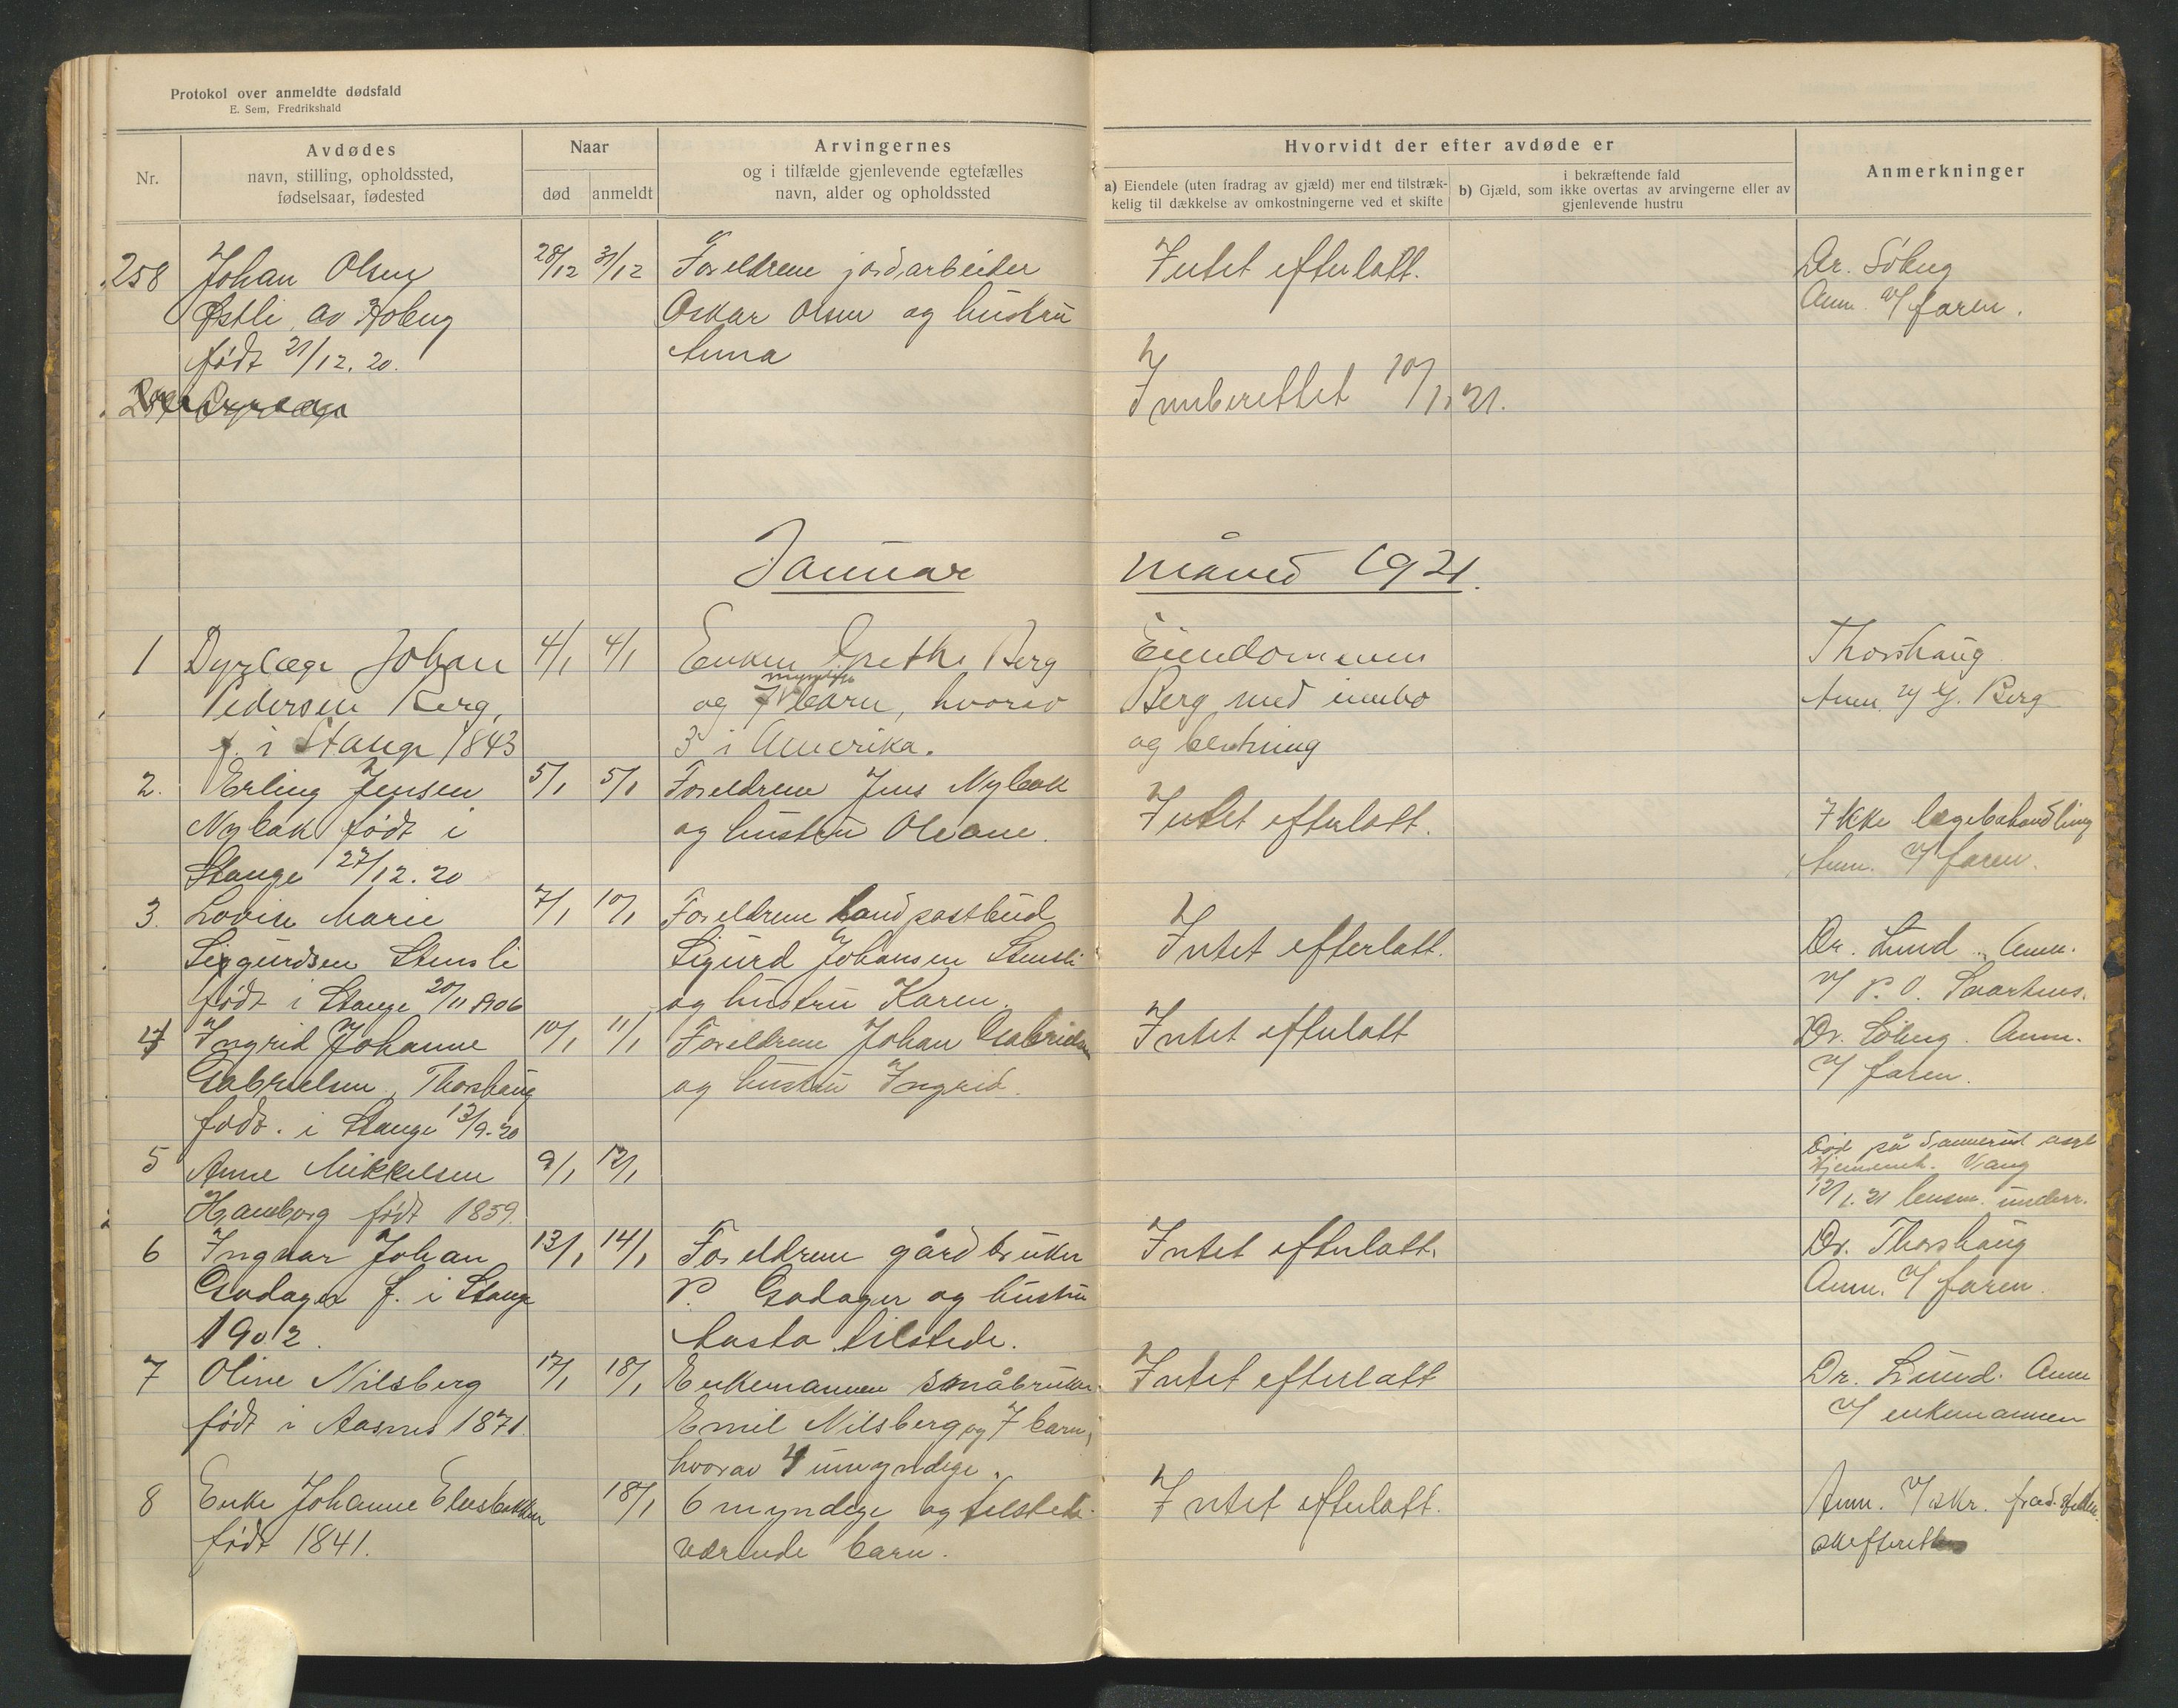 Protokol over anmeldte dødsfald
E. Sem, Fredrikshald
Nr.
Avdødes
navn, stilling, opholdssted,
fødselsaar, fødested
Naar
død
anmeldt
Arvingernes
og i tilfælde gjenlevende egtefælles
navn, alder og opholdssted
Hvorvidt der efter avdøde er
a) Eiendele (uten fradrag av gjæld) mer end tilstræk-
kelig til dækkelse av omkostningerne ved et skifte
i bekræftende fald
b) Gjæld, som ikke overtas av arvingerne eller av
gjenlevende hustru
Anmerkninger
258 Johan Olsen 28/12 31/12 Foreldrene jordarbeider Intet efterlatt. Dr. Søberg
Østli av Hoberg Oskar Olsen og hustru Anm. v/ faren.
født 21/12.20. Anna
Innberettet 10/1.21.
Januar måned 1921.
1 Dyrlæge Johan 4/1 4/1 Enken Grethe Berg Eiendommen Thorshaug
Pedersen Berg, og 7 myndige barn, hvorav Berg med innbo Anm. v/ G. Berg
f. i Stange 1843 3 i Amerika. og besetning
2. Erling Jensen 5/1 5/1 Foreldrene Jens Nybak Intet efterlatt. Ikke lægebehandling
Nybak født i og hustru Oleane. Anm. v/ faren.
Stange 27/12.20
3. Lovise Marie 7/1 10/1 Foreldrene landpostbud Intet efterlatt. Dr. Lund. Anm.
Sigurdsen Stensli Sigurd Johansen Stensli v/ P. O.
født i Stange 20/11 1906 og hustru Karen.
4 Ingrid Johanne 10/1 11/1 Foreldrene Johan Gabrielsen Intet efterlatt Dr. Søberg. Anm.
Gabrielsen, Thorshaug og hustru Ingrid. v/ faren.
født. i Stange 13/9.20
5 Anne Mikkelsen 9/1 12/1 Død på Sannerud asyl
Hjemmeh. Vang
født 1859. 12/1.21 lensm. underr.
6 Ingvar Johan 13/1 14/1 Foreldrene gårdbruker Intet efterlatt. Dr. Thorshaug
Godager f. i Stange P. Godager og hustru Anm. v/ faren.
1902. Aasta tilstede.
7 Oline Nilsberg 17/1 18/1 Enkemannen småbruker Intet efterlatt Dr. Lund. Anm
født i Aasnes 1871. Emil Nilsberg og 7 barn, v/ enkemannen
hvorav 4 umyndige.
8 Enke Johanne 18/1 6 myndige og tilstede- Intet efterlatt. Anm. v/ skr. fra
født 1841. værende barn. skifteretten